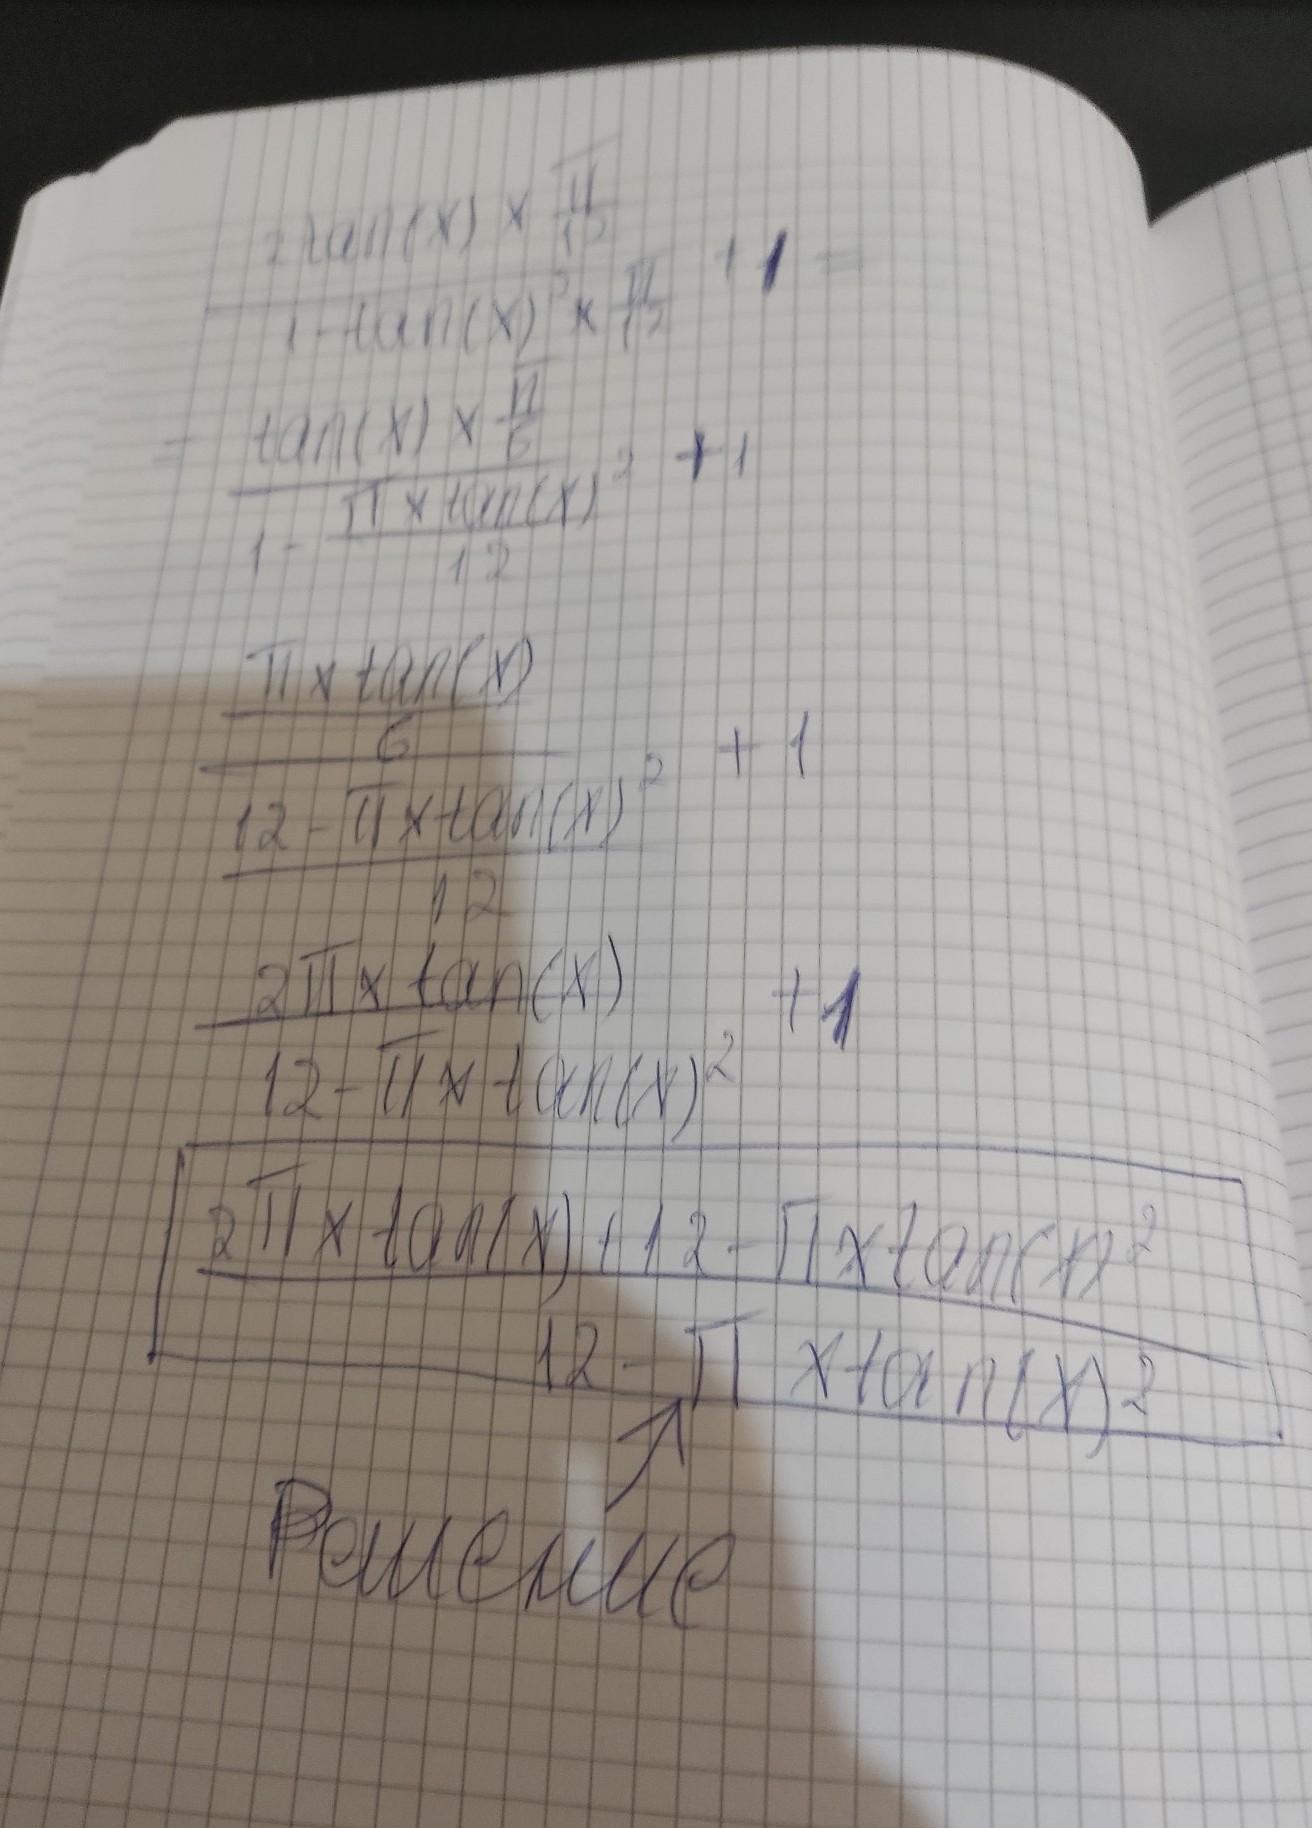 2tan(x) × π/12 / 1-tan(x)² × π/12 + 1 =
= tan(x) × π/6 / 1 - π×tan(x)²/12 + 1
π×tan(x)/6 / 12-π×tan(x)²/12 + 1
2π×tan(x) / 12-π×tan(x)² + 1
2π×tan(x)+12-π×tan(x)² / 12-π×tan(x)²
Решение